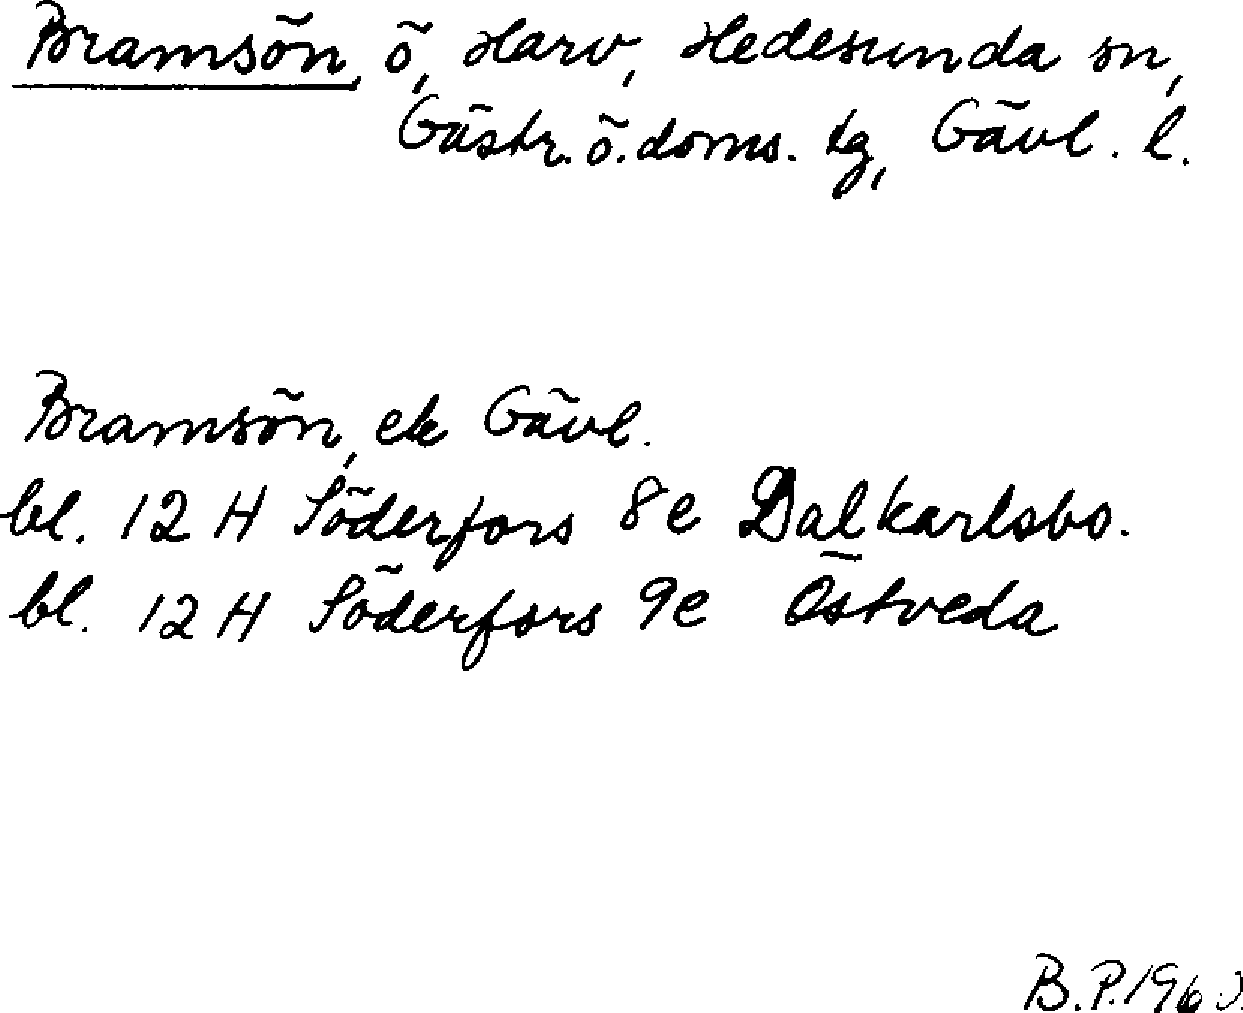 Bramsön, ö, Harv, Hedesunda sn,
Gästr. ö. doms. tg, Gävl. l.
Bramsön, ek Gävl.
bl. 12 H Söderfors 8e Dalkarlsbo.
bl. 12 H Söderfors 9e Östveda
B.P.